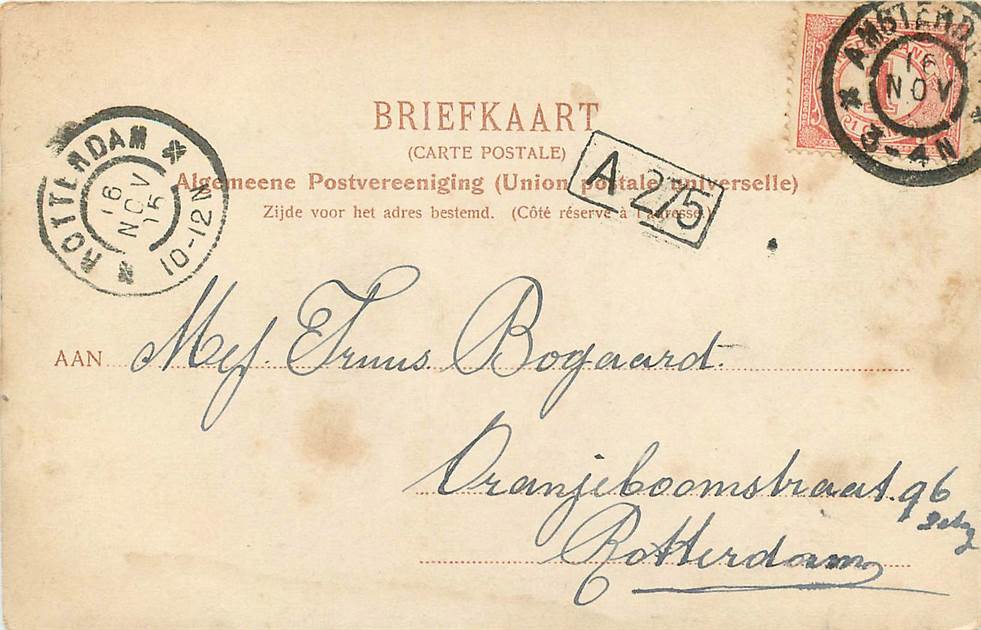 BRIEFKAART
(CARTE POSTALE)
Algemeene Postvereeniging (Union postale universelle)
Zijde voor het adres bestemd. (Côté réservé à l'adresse.)
A 275
ROTTERDAM
16 NOV 15
10-12N
AMSTERD
16
NOV
AAN Mej. Truus Bogaard.
Oranjeboomstraat. 96
Rotterdam